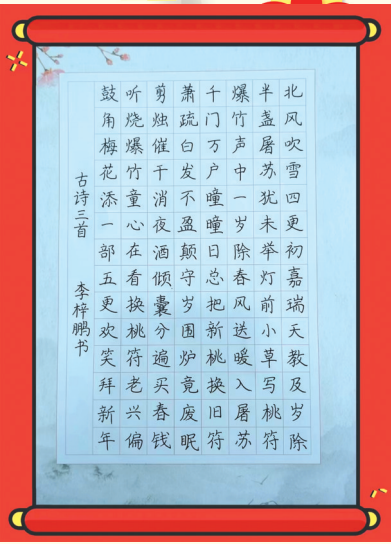 北风吹雪四更初嘉瑞天教及岁除
半盏屠苏犹未举灯前小草写桃符
爆竹声中一岁除春风送暖入屠苏
千门万户曈曈日总把新桃换旧符
萧疏白发不盈颠守岁围炉竟废眠
剪烛催干消夜酒倾囊分遍买春钱
听烧爆竹童心在看换桃符老兴偏
鼓角梅花添一部五更欢笑拜新年
古诗三首 李梓鹏书